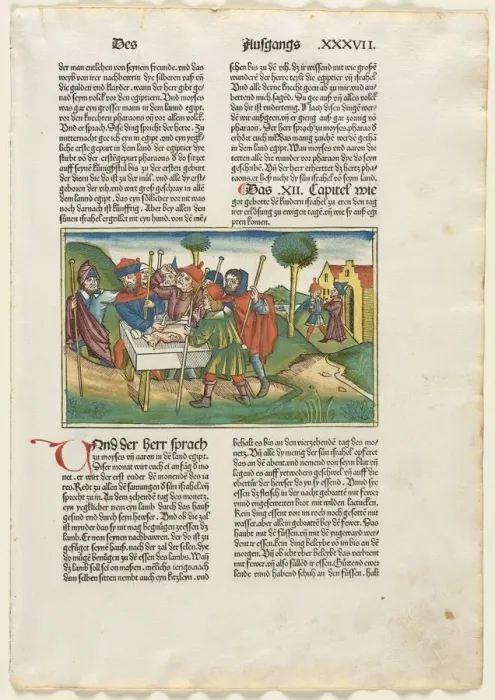 Des
Ausgangs .XXXVII.
der man entlehen von seynem freunde. vnd das
weyb von irer nachbewrin dye silberen vaß vñ
die guldin vnd klayder. wann der herr gibt ge/
nad seym volck vor den egiptiern. Vnd moyses
was gar eyn grosser mann in dem lannd egipt.
vor den knechten pharaons vñ vor allem volck.
Vnd er sprach. Dise ding spricht der herr. Zu
mitternacht gee ich eyn in egipt. vnd eyn yegk/
liche erste gepurt in dem lannd der egiptier dye
stirbt võ der erstẽ gepurt pharaons der do sitzet
auff seynẽ künigstul bis zu der ersten geburt
der diern die do ist zu der mül. vnd alle dy erst
geboren der vich. vnd wirt groß geschray in alle
dem lannd egipt. das eyn söllicher vor nit was
noch darnach ist künfftig. Aber bey allen den
sünen israhel ergrillet nit eyn hund. von dẽ mẽ/
schen bis zu dẽ vich. dz ir wissend mit wie grosse
wunderẽ der herre teylt die egiptier vñ israhel
Vnd alle deyne knecht geen ab zu mir. vnd an/
bettend mich. sagẽd. Du gee auß vñ alles volck
das dir ist vnderteng. Nach disen dingẽ wer/
dẽ wir außgeen. vñ er gieng auß gar zornig võ
pharaon. Der herr sprach zu moyses. pharao d
erhört euch nit. das manig zaichẽ werdẽ gethã
in dem land egipt. Wan moyses vnd aaron die
tetten alle die wunder vor pharaon dye do seyn
geschribẽ. Vñ der herr erhertet dz hertz pha/
raons. er ließ nicht dy sün israhel võ seym land.
Das .XII. Capitel wie
got gebotte dẽ kindern israhel zu eren den tag
irer erlösung zu ewigen tagẽ. vñ wie sy auß egi
pten komen.
Vnd der herr sprach
zu moyses vñ aaron in dẽ land egipt.
Diser monat wirt euch ei anfãg d mo
net. er wirt der erst vnder dẽ moneden des ia
res. Redt zu allen dẽ samnungen d sün israhel. vñ
sprecht zu in. An dem zehendẽ tag des monetz.
eyn yegklicher nem eyn lamb durch das hauß
gesind vnd durch seyn hewser. Vnd ob die zal
ist mynder das sy nit mag begnügen zeessen dz
lamb. Er nem seynen nachbawren. der do ist zu
gefüget seynẽ hauß. nach der zal der selen. dye
do mügẽ benügen zu dẽ essen des lambs. Wañ
dz lamb soll sei on masen. mẽlichs. ierigs. nach
dem selben sitten nembt auch eyn kitzleyn. vnd
behalt es bis an den vierzehendẽ tag des mo/
netz. Vñ alle dy menig der sün israhel opferet
das an dẽ abent. vnd nemend von seym blut vñ
legend es auff yetwedern geschwel. vñ auff die
übertür der hewser do sy sy essend. Vnnd sye
essen dz fleisch in der nacht gebratẽ mit fewer
vnnd vngeseurten brot mit wilden lactucken.
Kein ding essent von im roch noch gesottẽ mit
wasser. aber alleyn gebrattẽ bey dẽ fewer. Das
haubt mit dẽ füssen. vñ mit dẽ yngeweyd wer/
dent ir essen. kein ding beleybe võ im bis an dẽ
morgen. Vñ ob icht über beleybt das verbrent
mit fewer. vñ also süllẽd ir essen. Gürtend ewer
lende vnnd habend schuh an den füssen. halt